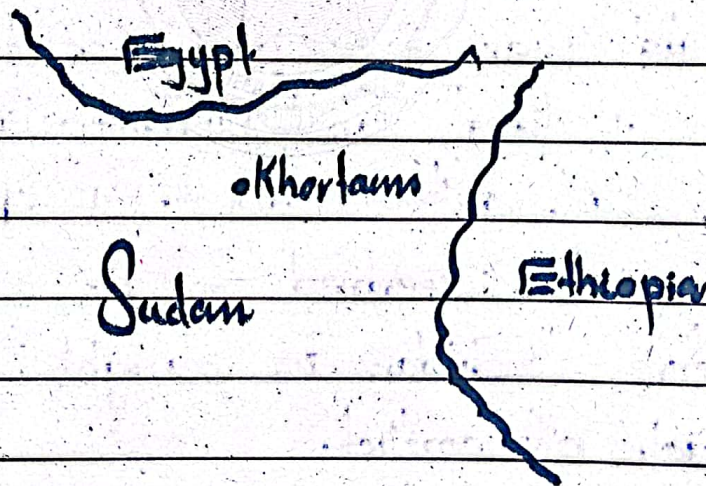 Egypt
Khortaum
Sudan
Ethiopia